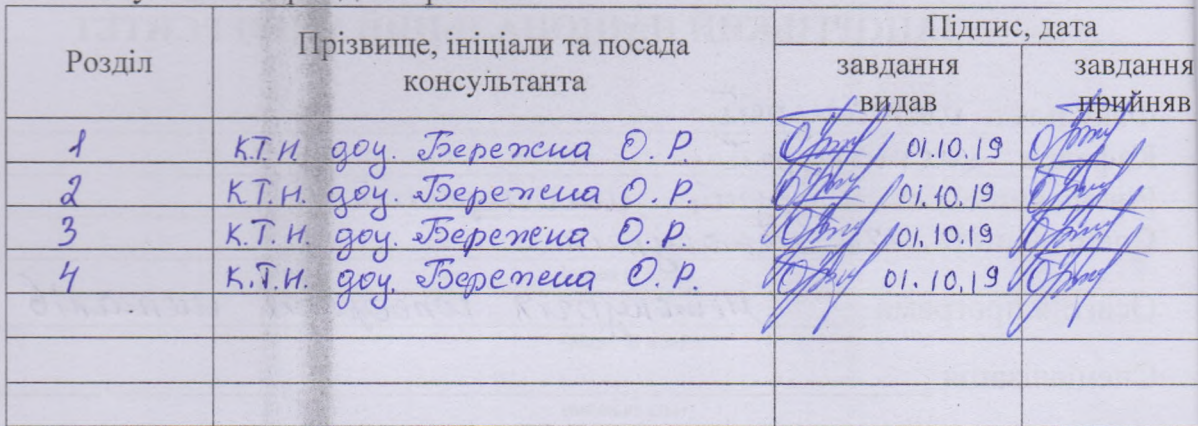 Розділ
Прізвище, ініціали та посада консультанта
Підпис, дата
завдання видав
завдання прийняв
1 к.т.н. доц. Бережна О. Р. 01.10.19
2 к.т.н. доц. Бережна О. Р. 01.10.19
3 к.т.н. доц. Бережна О. Р. 01.10.19
4 к.т.н. доц. Бережна О. Р. 01.10.19